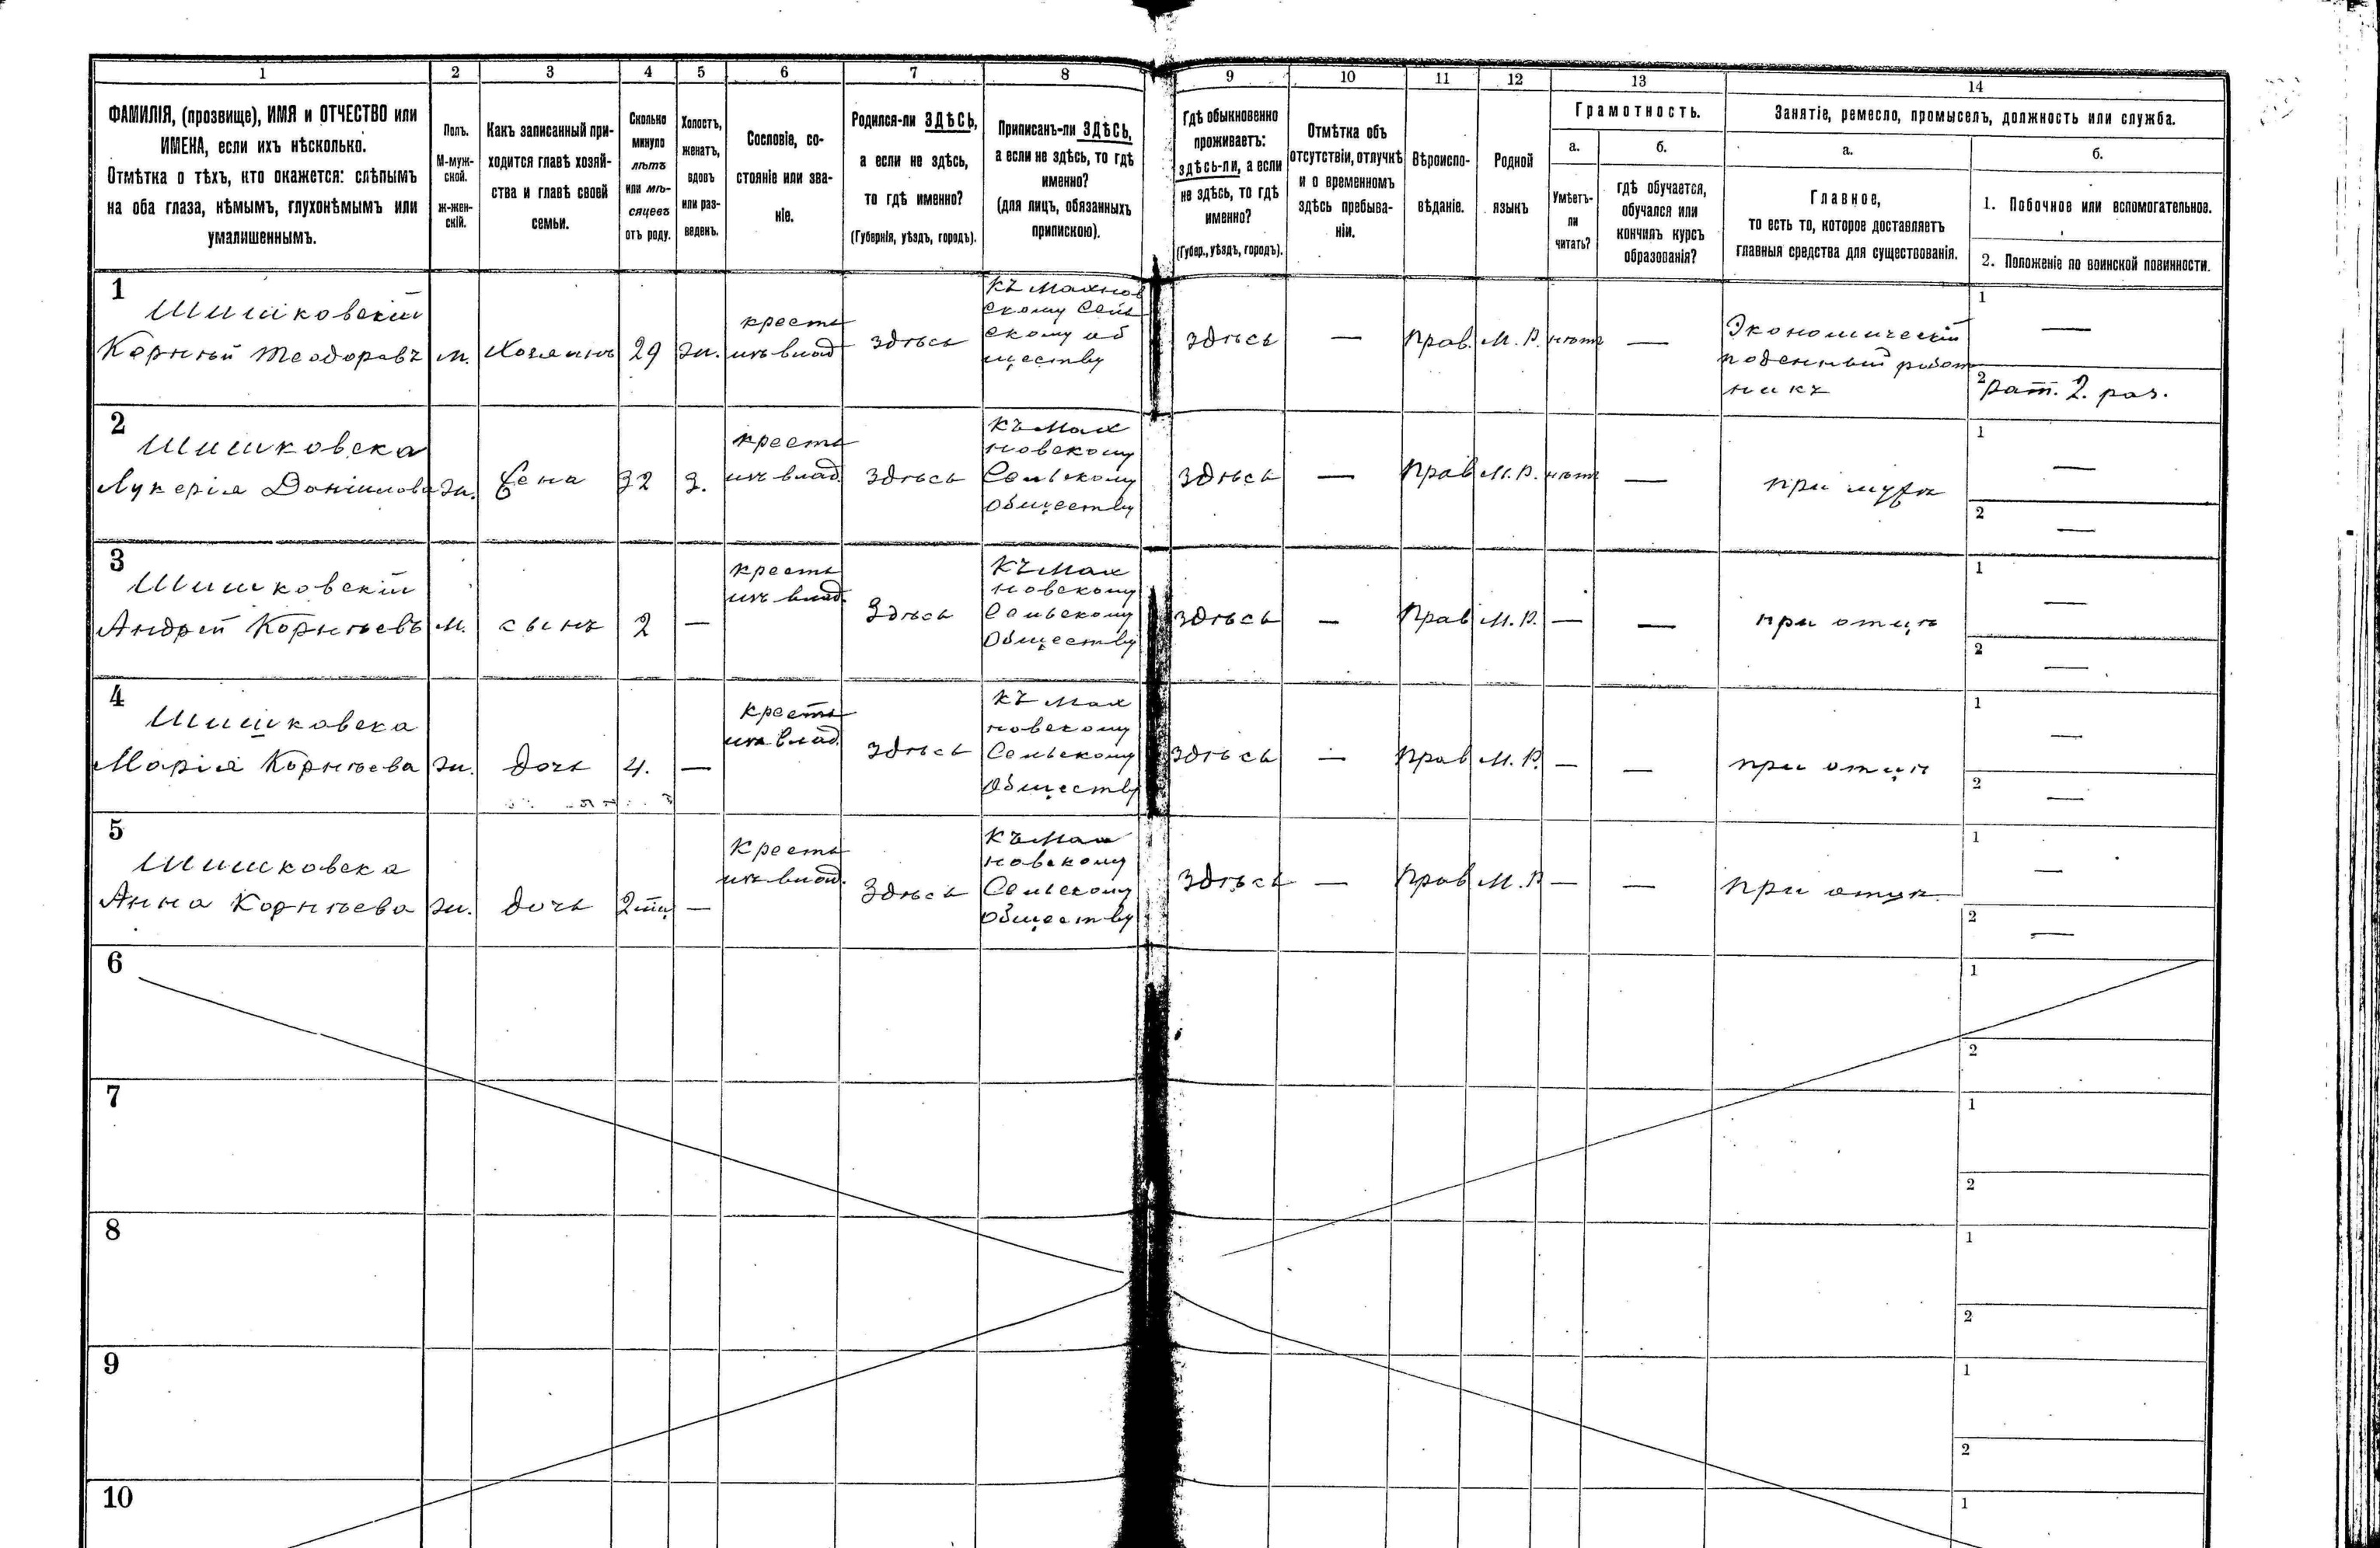 1 2 3 4 5 6 7 8 9 10 11 12 13 14
ФАМИЛІЯ, (прозвище), ИМЯ и ОТЧЕСТВО или
ИМЕНА, если ихъ нѣсколько.
Отмѣтка о тѣхъ, кто окажется: слѣпымъ
на оба глаза, нѣмымъ, глухонѣмымъ или
умалишеннымъ.
Полъ.
М-муж-
ской.
ж-жен-
скій.
Какъ записанный при-
ходится главѣ хозяй-
ства и главѣ своей
семьи.
Сколько
минуло
лѣтъ
или мѣ-
сяцевъ
отъ роду.
Холостъ,
женатъ,
вдовъ
или раз-
веденъ.
Сословіе, со-
стояніе или зва-
ніе.
Родился-ли ЗДѢСЬ,
а если не здѣсь,
то гдѣ именно?
(Губернія, уѣздъ, городъ).
Приписанъ-ли ЗДѢСЬ,
а если не здѣсь, то гдѣ
именно?
(для лицъ, обязанныхъ
припискою).
Гдѣ обыкновенно
проживаетъ:
здѣсь-ли, а если
не здѣсь, то гдѣ
именно?
(Губер., уѣздъ, городъ).
Отмѣтка объ
отсутствіи, отлучкѣ
и о временномъ
здѣсь пребыва-
ніи.
Вѣроиспо-
вѣданіе.
Родной
языкъ
Грамотность.
а.
Умѣетъ-
ли
читать?
б.
гдѣ обучается,
обучался или
кончилъ курсъ
образованія?
Занятіе, ремесло, промыселъ, должность или служба.
а.
Главное,
то есть то, которое доставляетъ
главныя средства для существованія.
б.
1. Побочное или вспомогательное.
2. Положеніе по воинской повинности.
1
Шишковскій
Корнѣй Теодоровъ
м.
Хозяинъ
29
ж.
кресть
изъ влад
здѣсь
къ Махнов
скому Сель
скому об
ществу
здѣсь
—
Прав.
М. Р.
нѣтъ
—
Экономическій
поденный работ
никъ
1 —
2 рат. 2. раз.
2
Шишковска
Лукерія Даніилова
ж.
Жена
32
З.
кресть
изъ влад.
здѣсь
къ Мах
новскому
Сельскому
Обществу
здѣсь
—
Прав
М. Р.
нѣтъ
—
при мужѣ
1 —
2 —
3
Шишковскій
Андрей Корнѣевъ
м.
сынъ
2
—
кресть
изъ влад.
Здѣсь
къ Мах
новскому
Сельскому
Обществу
здѣсь
—
Прав
М. Р.
—
—
при отцѣ
1 —
2 —
4
Шишковска
Марія Корнѣева
ж.
дочь
4.
—
кресть
изъ влад.
здѣсь
къ Мах
новскому
Сельскому
Обществу
здѣсь
—
Прав
М. Р.
—
—
при отцѣ
1 —
2 —
5
Шишковска
Анна Корнѣева
ж.
дочь
—
Кресть
изъ влад.
Здѣсь
къ Мах
новскому
Сельскому
обществу
здѣсь
—
Прав
М. Р
—
—
при отцѣ
1 —
2 —
6
1
2
7
1
2
8
1
2
9
1
2
10
1